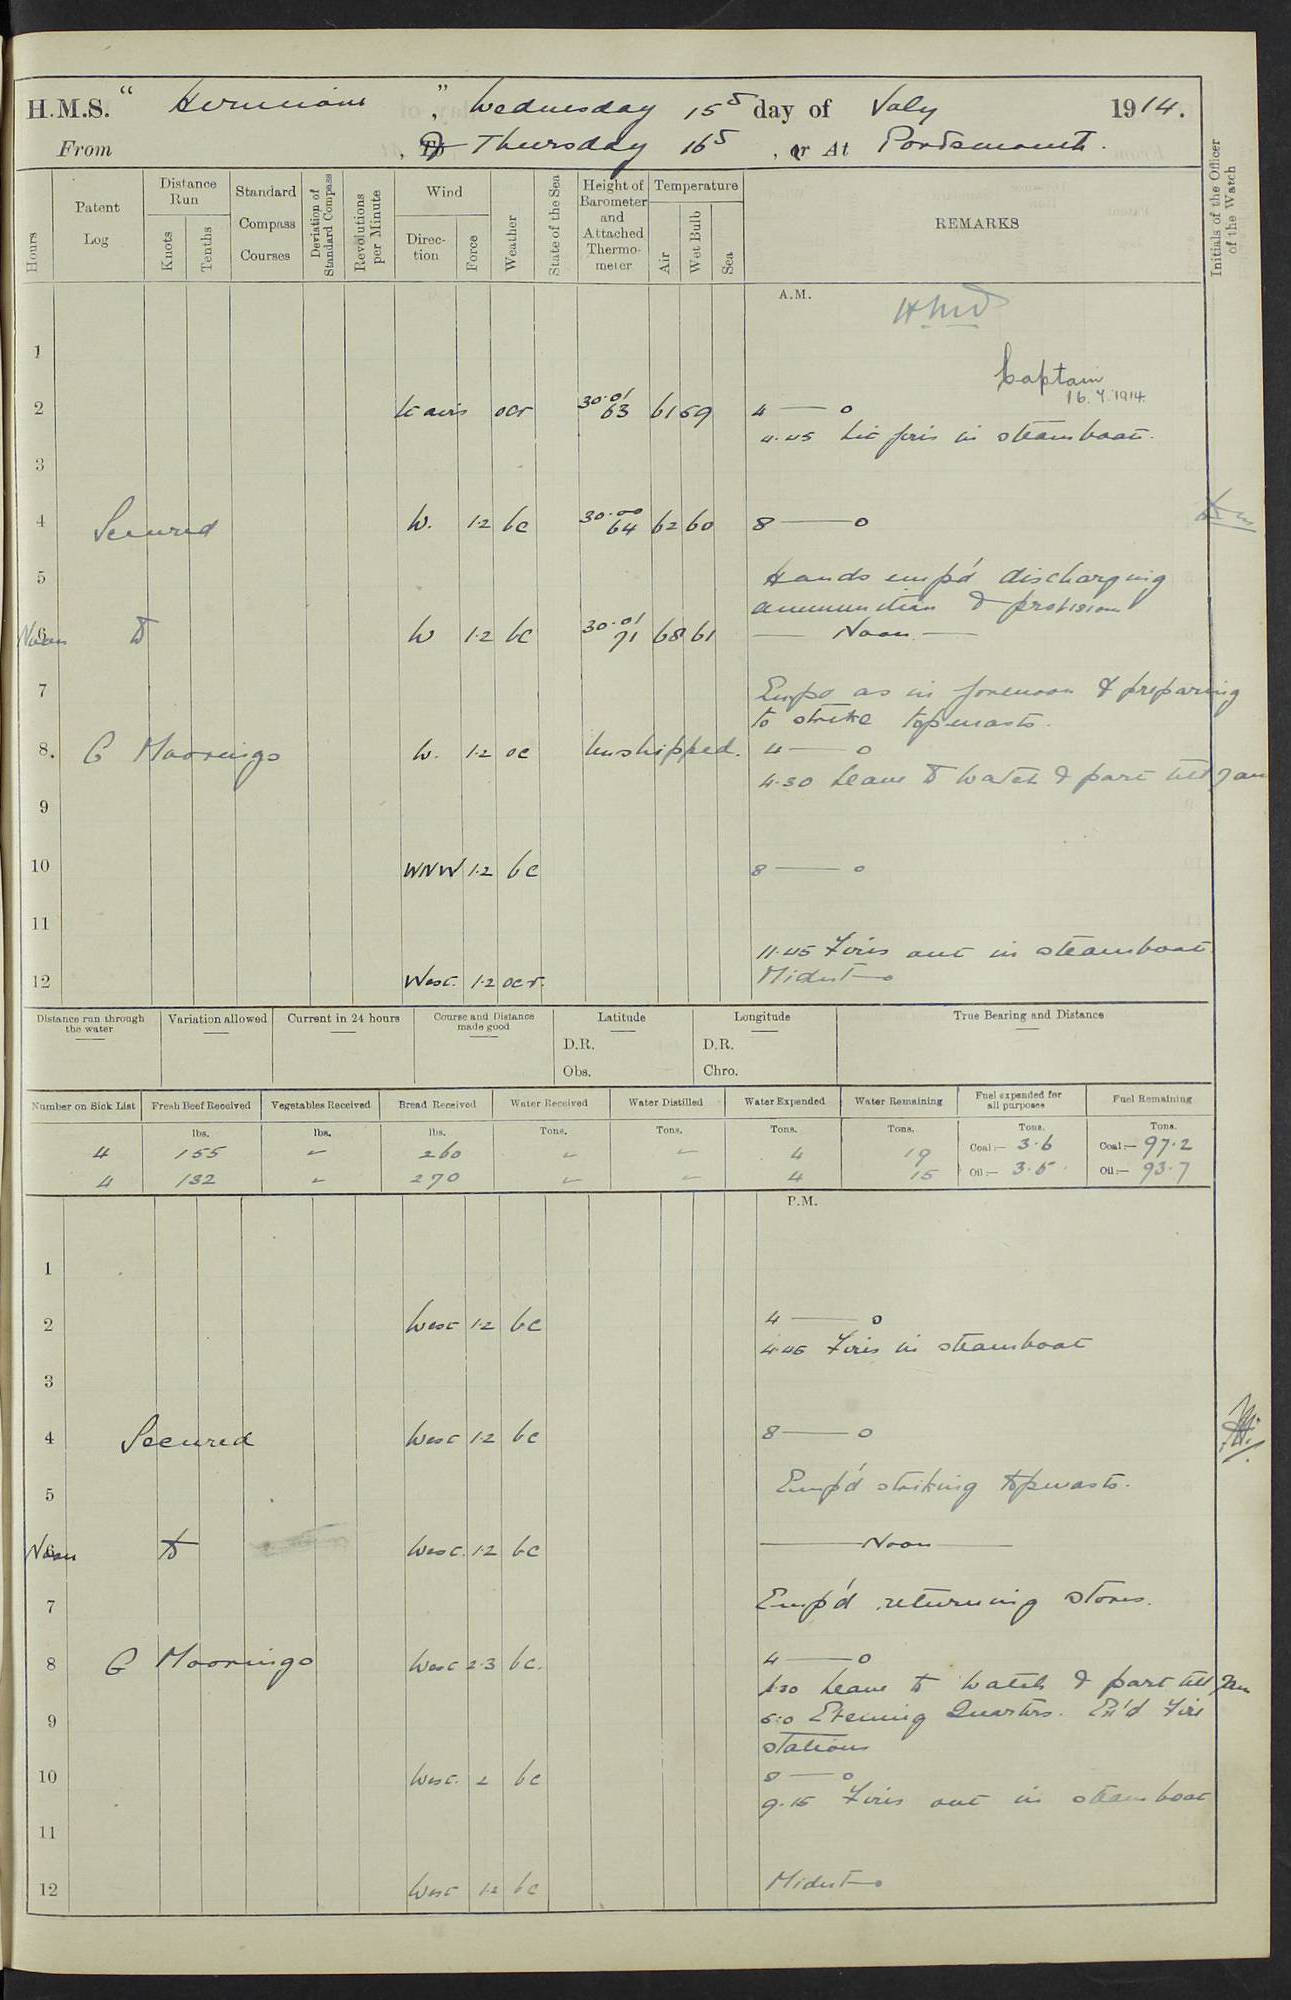 H.M.S. " Hermione ", Wednesday 15th day of July 1914.
From , To & Thursday 16th , or At Portsmouth.
Hours
Patent Log
Distance Run
Knots
Tenths
Standard Compass Courses
Deviation of Standard Compass
Revolutions per Minute
Wind
Direction
Force
Weather
State of the Sea
Height of Barometer and Attached Thermometer
Temperature
Air
Wet Bulb
Sea
REMARKS
Initials of the Officer of the Watch
A.M.
1
Captain
16.7.1914
2 ocr 30.01 63 61 59 4 — o
4.45 Lit fires in steamboat.
3
4 Secured W. 1.2 bc 30.00 64 62 60 8 — o
5 Hands emp'd discharging
ammunition & provision
6 Noon to W 1.2 bc 30.01 71 68 61 — Noon —
7 Emp'd as in forenoon & preparing
to strike topmasts.
8. C Moorings W. 1.2 oc Unshipped. 4 — o
4.30 Leave to watch & part till 7am
9
10 WNW 1.2 bc 8 — o
11
11.45 Fires out in steamboat
12 West. 1.2 ocr. Midnt — o
Distance run through the water
Variation allowed
Current in 24 hours
Course and Distance made good
Latitude
D.R.
Obs.
Longitude
D.R.
Chro.
True Bearing and Distance
Number on Sick List Fresh Beef Received Vegetables Received Bread Received Water Received Water Distilled Water Expended Water Remaining Fuel expended for all purposes Fuel Remaining
lbs. lbs. lbs. Tons. Tons. Tons. Tons. Tons. Tons.
4 155 – 260 – – 4 19 Coal:– 3.6 Coal:– 97.2
4 132 – 270 – – 4 15 Oil:– 3.5 Oil:– 93.7
P.M.
1
2 West 1.2 bc 4 — o
4.45 Fires in steamboat
3
4 Secured West 1.2 bc 8 — o
5 Emp'd striking topmasts.
6 Noon to West. 1.2 bc — Noon —
7 Emp'd returning stores.
8 C Moorings West 2.3 bc. 4 — o
4.30 Leave to watch & part till 7am
9 5.0 Evening Quarters. Ex'd Fire
stations
10 West. 2 bc 8 — o
9.15 Fires out in steamboat
11
12 West 1.2 bc Midnt — o